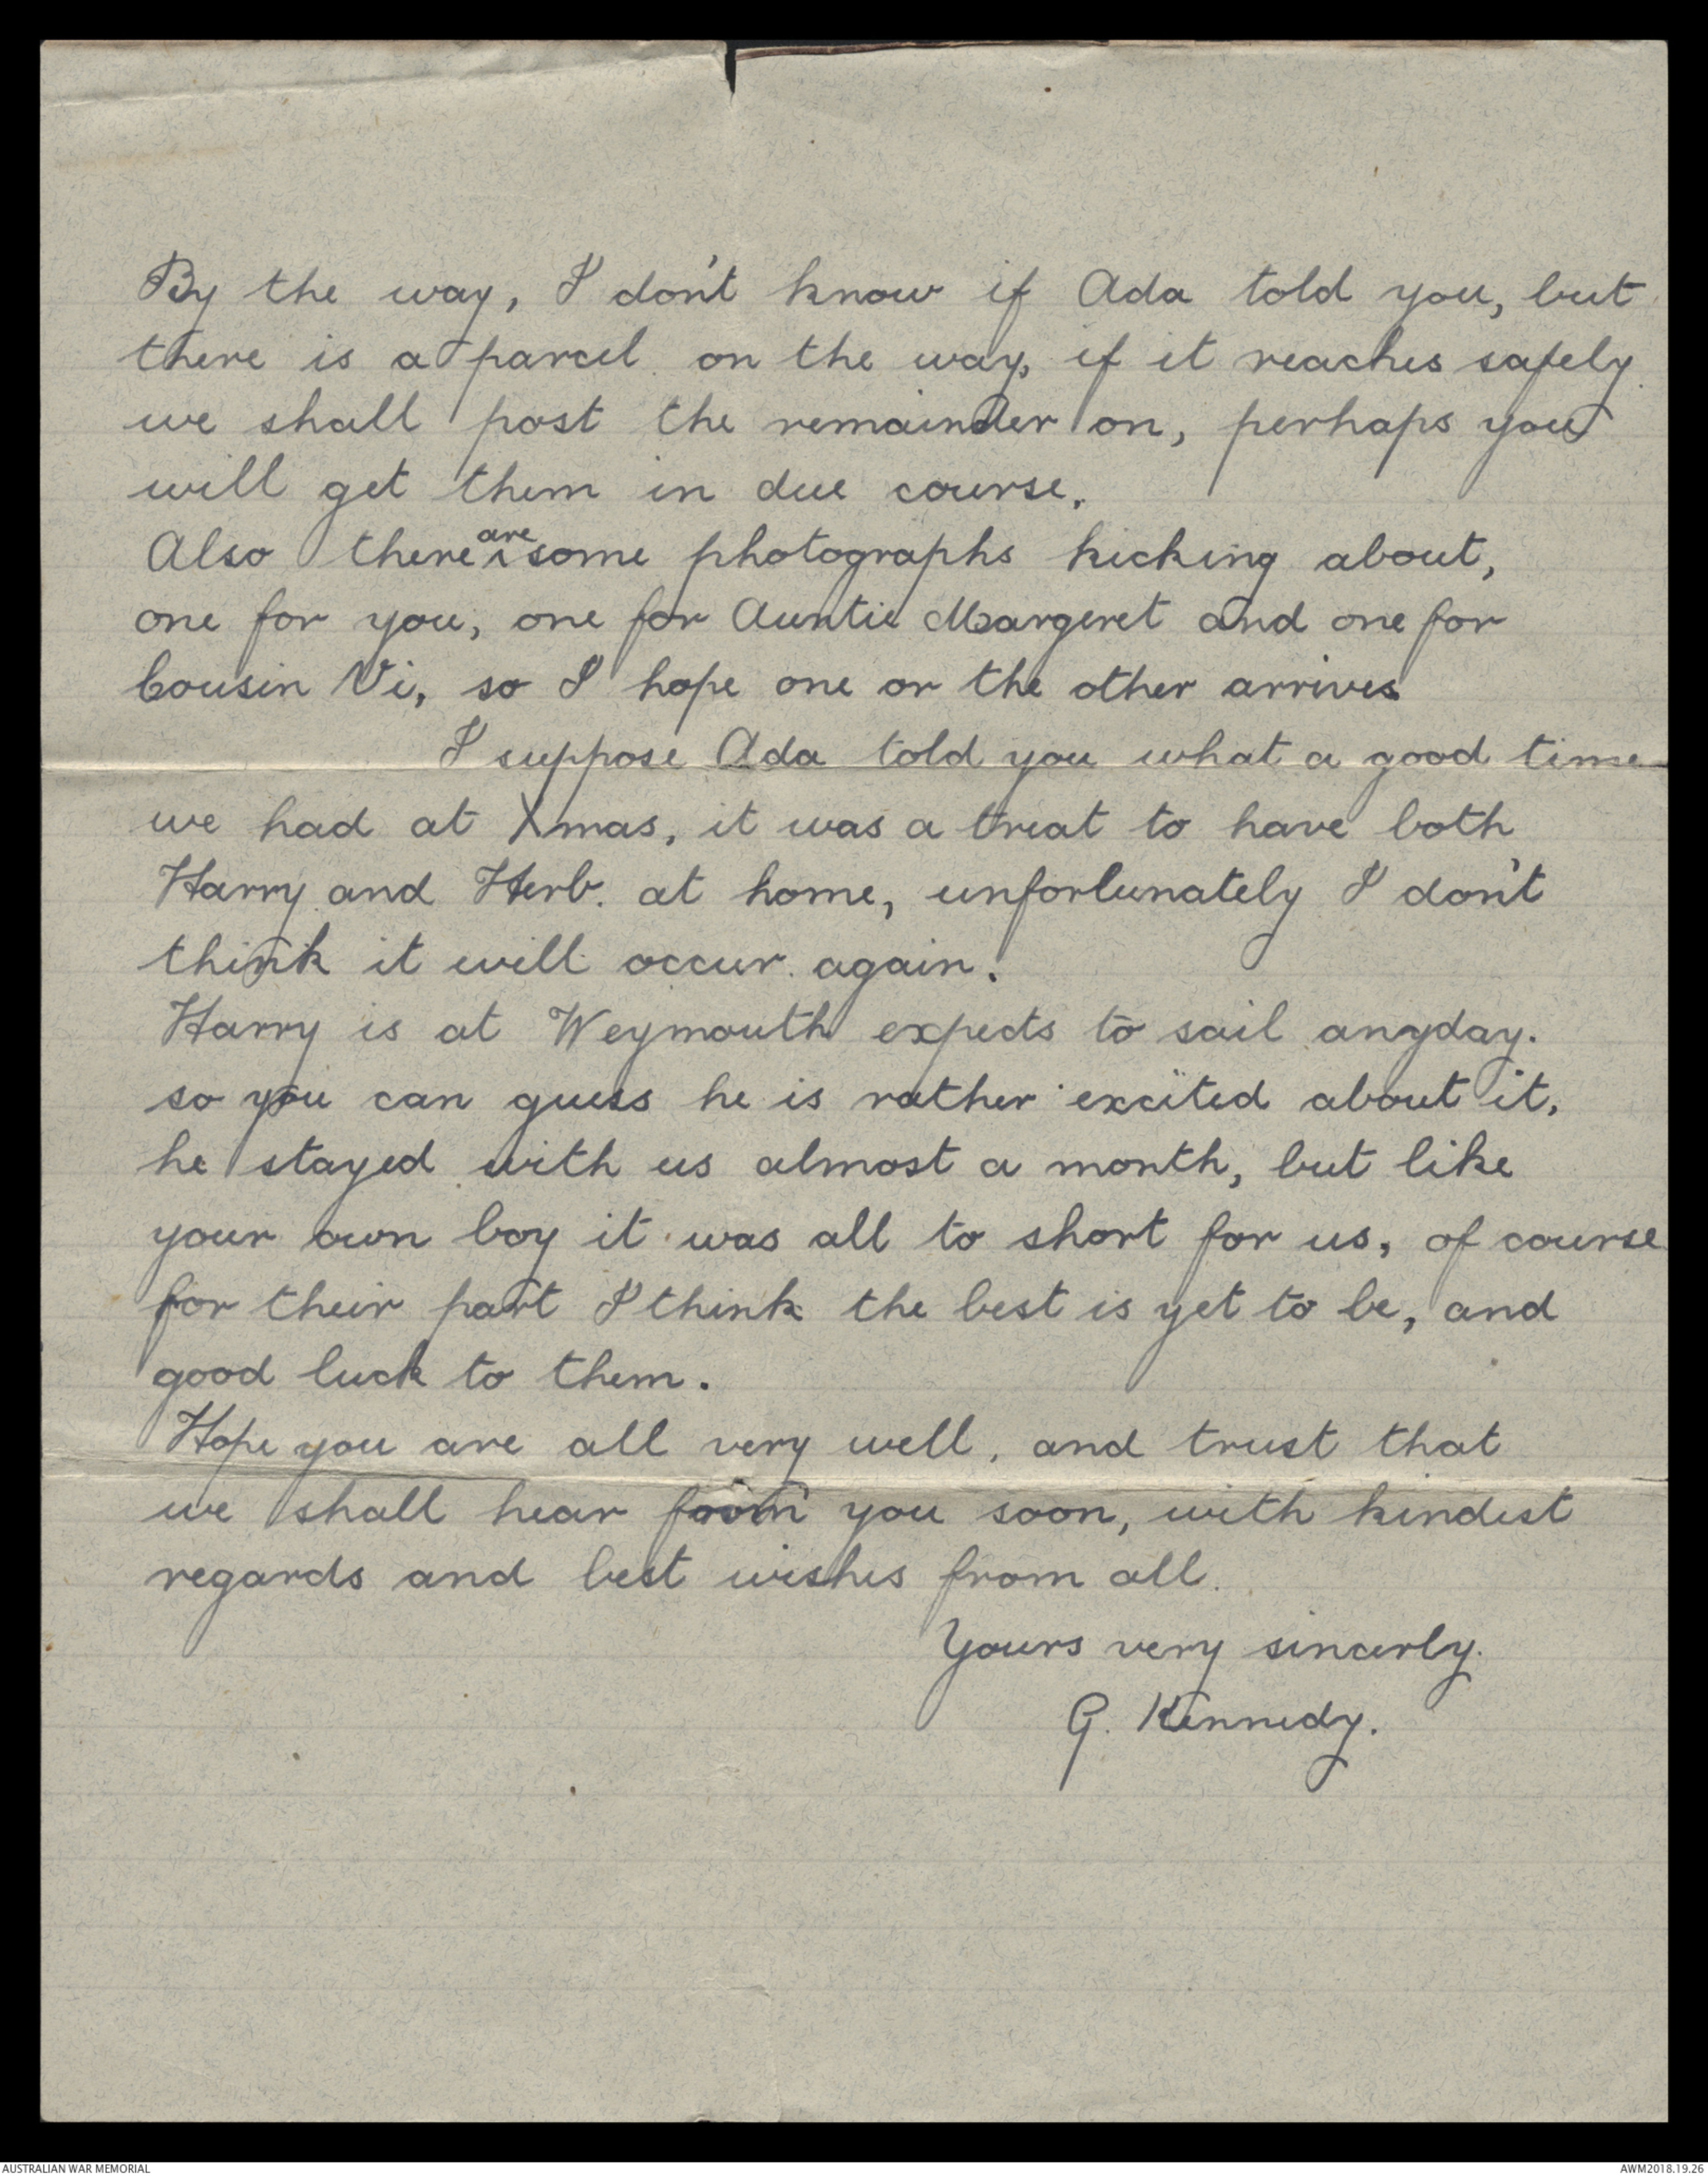 By the way, I don't know if Ada told you, but
there is a parcel on the way, if it reaches safely
we shall post the remainder on, perhaps you
will get them in due course.
Also there are some photographs kicking about,
one for you, one for Auntie Margeret and one for
Cousin Vi, so I hope one or the other arrives
I suppose Ada told you what a good time
we had at Xmas, it was a treat to have both
Harry and Herb. at home, unfortunately I don't
think it will occur again.
Harry is at Weymouth expects to sail anyday.
so you can guess he is rather excited about it,
he stayed with us almost a month, but like
your own boy it was all to short for us, of course
for their part I think the best is yet to be, and
good luck to them.
Hope you are all very well, and trust that
we shall hear from you soon, with kindest
regards and best wishes from all.
Yours very sincerly.
G. Kennedy.
AUSTRALIAN WAR MEMORIAL
AWM2018.19.26